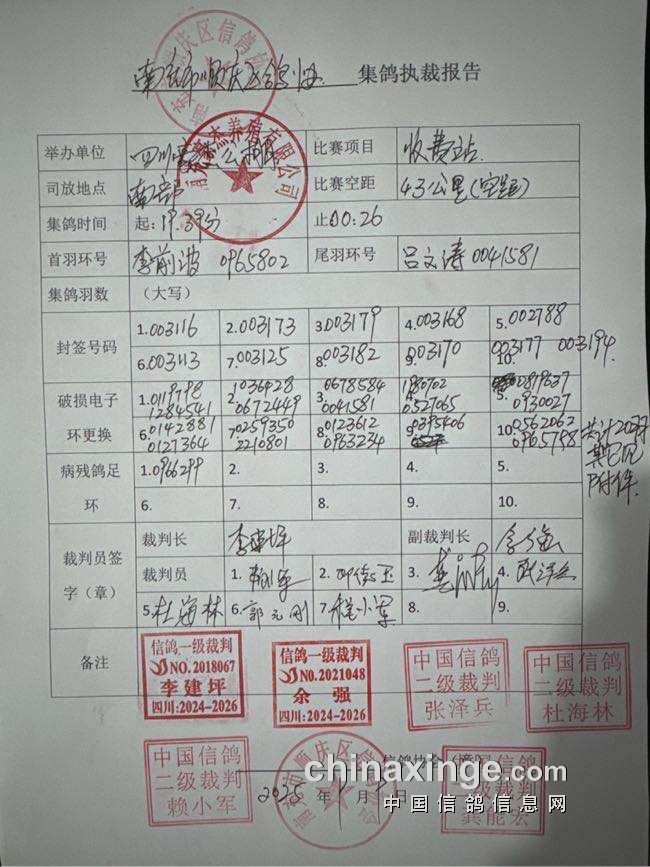 南充市顺庆区信鸽协会 集鸽执裁报告
举办单位 四川 比赛项目 收费站
司放地点 南部 比赛空距 43公里(空距)
集鸽时间 起: 19.39分 止00:26
首羽环号 李前波 0965802 尾羽环号 吕文涛 0041581
集鸽羽数 (大写)
封签号码 1.003116 2.003173 3.003179 4.003168 5.002788
6.003113 7.003125 8.003182 9.003170 10.003177 003194
破损电子环更换 1.0119798 2.1036928 3.0678584 4. 5.0819637
1284541 0672449 0041581 0527065 0930027
6.0142881 7.0259350 8.0123612 9.8395406 10.0562062
0127364 2210801 0963234 0965798
共计20羽
其它见
附件
病残鸽足环 1.0966299 2. 3. 4. 5.
6. 7. 8. 9. 10.
裁判员签字(章) 裁判长 李建坪 副裁判长 余强
裁判员 1. 2. 3. 4.张泽兵
5.杜海林 6.郭元刚 7.赖小军 8. 9.
备注
信鸽一级裁判
NO.2018067
李建坪
四川:2024-2026
信鸽一级裁判
NO.2021048
余强
四川:2024-2026
中国信鸽
二级裁判
张泽兵
中国信鸽
二级裁判
杜海林
中国信鸽
二级裁判
赖小军
信鸽协会(章)
二级裁判
龚能宏
2025年1月1日
chinaxinge.com
中国信鸽信息网